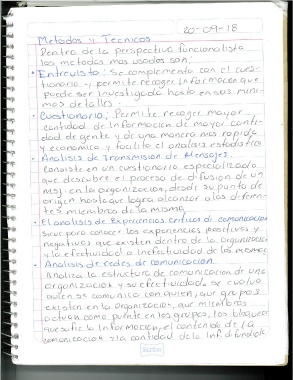 20-09-18
Metodos y Tecnicos
Dentro de la perspectiva funcionalista
los metodos mas usados son:
• Entrevista: Se complementa con el cues-
tionario y permite recoger Informacion que
puede ser investigada hasta en sus mini-
mos detalles.
• Cuestionario: Permite recoger mayor
cantidad de Informacion de mayor canti-
dad de gente y de una manera mas rapida
y economica y facilita el analisis estadistico
• Analisis de Transmision de Mensajes.
Consiste en un cuestionario especializado
que descubre el proceso de difusion de un
msj. en la organizacion, desde su punto de
origen hasta que logra alcanzar a los diferen-
tes miembros de la misma.
• El analisis de Experiencias criticas de comunicacion
sirve para conocer las experiencias positivas y
negativas que existen dentro de la organizacion
y la efectividad o inefectividad de las mismas
• Analisis de redes de comunicacion.
Analiza la estructura de comunicacion de una
organizacion y su efectividad. Se evalua
quien se comunica con quien, que grupos
existen en la organizacion, que miembros
actuan como puente en los grupos, los bloqueos
que sufre la Informacion, el contenido de la
comunicacion y la cantidad de la Inf. difundida